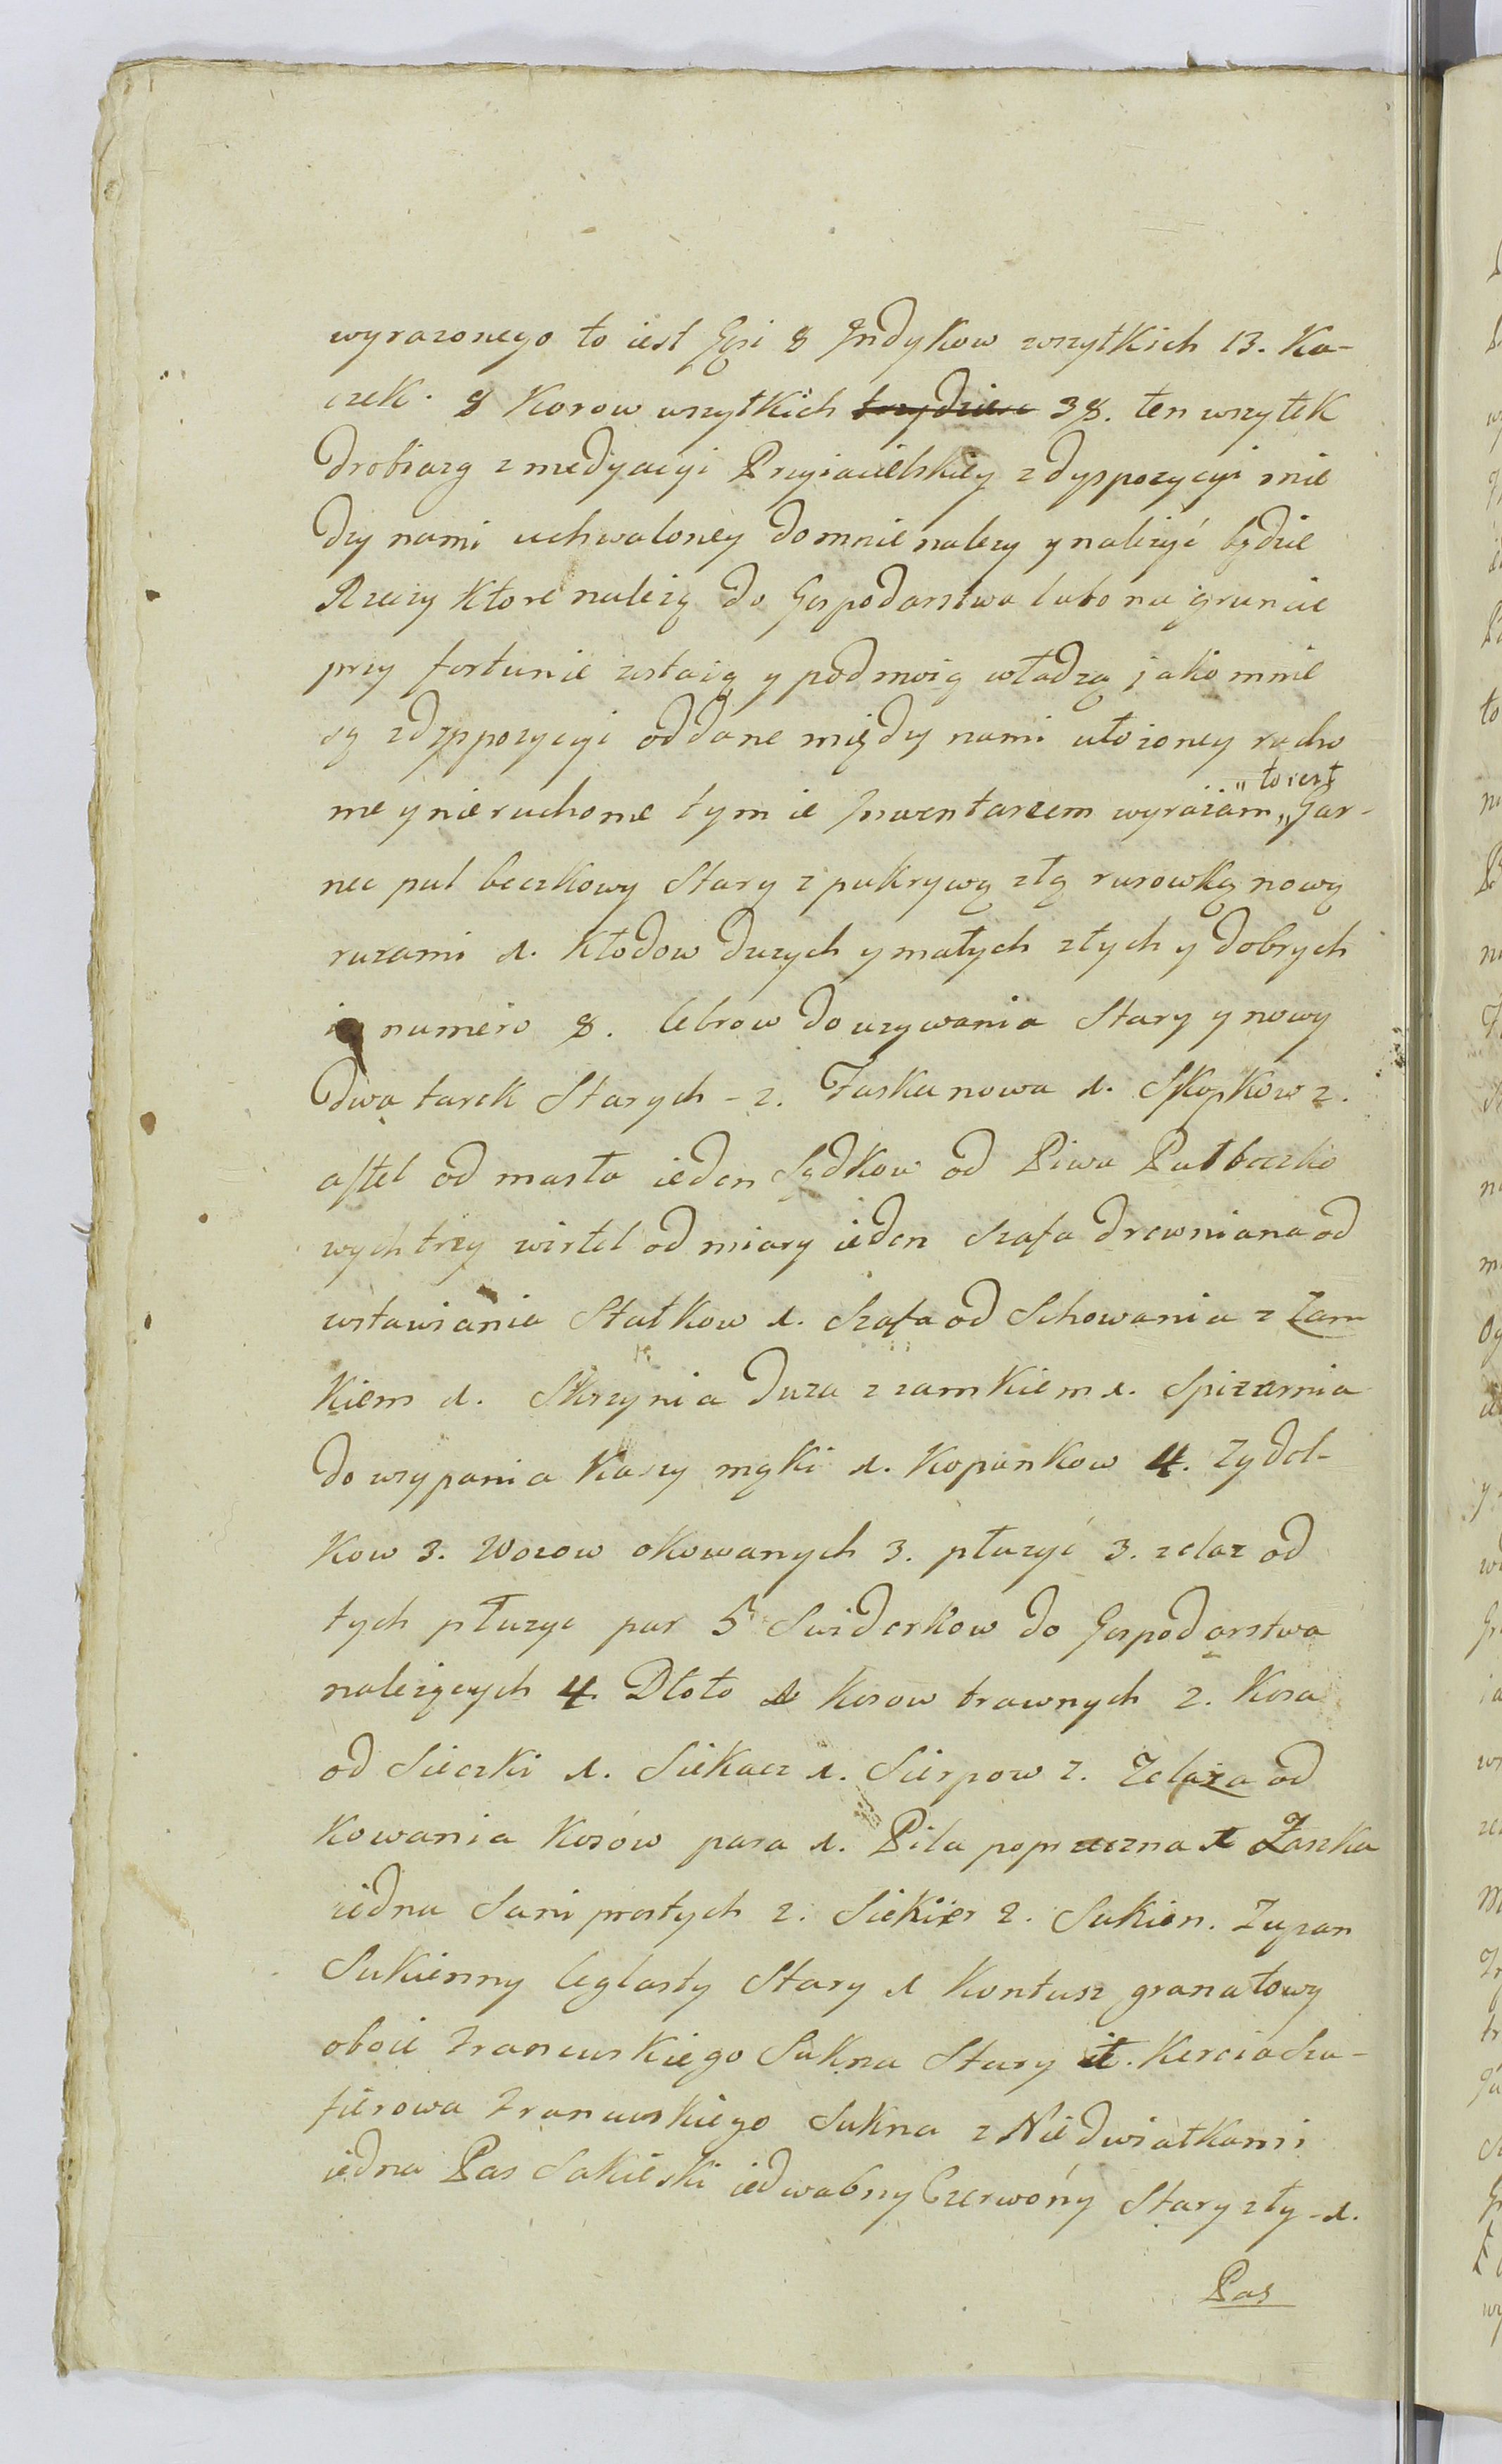 wyrazonego to iest Gęsi 8 Jndykow wszytkich 13. Ka-
czek. 8 Korow wszytkich trzydziesc 38. ten wszytek
drobiazg z medyacyi Przyiacielskiey z dyspozycyi mie
dzy nami uchwaloney do mnie nalezy y należyć będzie
Rzeczy Ktore należą do Gospodarstwa lubo na gruncie
przy fortunie zostaią y pod moią władzą jako mnie
są z dyspozycyi oddane między nami ułozoney rucho
me y nie ruchome tym ie Jnwentarzem wyrażam „ to iest „ Gar-
nec puł beczkowy Stary z pukrywą złą rurowką nową
rurami 1. Kłodow duzych y małych złych y dobrych
in numero 8. Cebrow do uzywania Stary y nowy
dwa tarek Starych - 2. Faska nowa 1. Skopkow 2.
aftel od masła ieden Sądkow od Piwa Pułbeczko
wych trzy wirtel od miary ieden Szafa drewniana od
wstawiania Statkow 1. Szafa od Schowania z Zam
Kiem 1. Skrzynia Duza z zamkiem 1. Spizarnia
do wsypania Kaszy mąki 1. Kopankow 4. Zydel-
Kow 3. Wozow okowanych 3. płużyć 3. zelaz od
tych płuzyc par 5 Swiderkow do Gospodarstwa
należących 4. Dłoto 1 Kosow trawnych 2. Kosa
od Sieczki 1. Siekacz 1. Sierpow 2. Zelaza od
Kowania Kosów para 1. Piła poprzeczna 1 Laszka
iedna Sani prostych 2. Siekier 2. Sukien. Zupan
Sukienny Ceglasty Stary 1 Kontusz granatowy
oboie Francuskiego Sukna Stary 1. Kercia Sza-
fierowa Francuskiego Sukna z Niedwiatkami
iedna Pas Sakieski iedwabny Czerwóny Stary zły - 1.
Pas